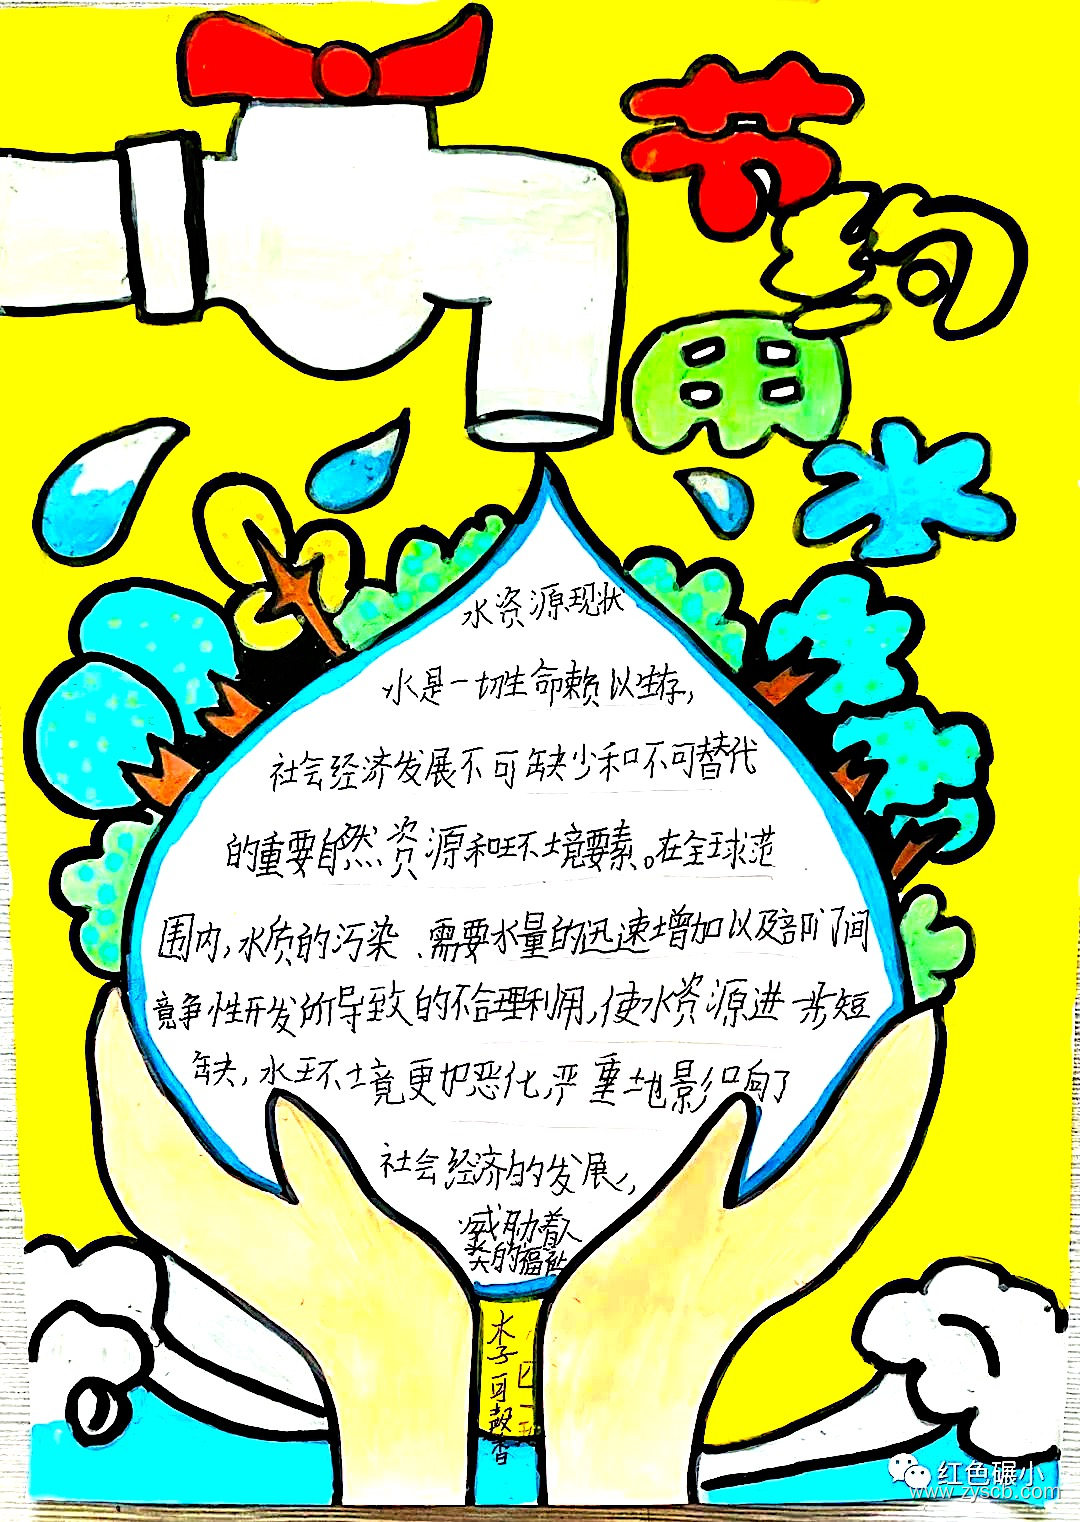 节约用水
水资源现状
水是一切生命赖以生存，
社会经济发展不可缺少和不可替代
的重要自然资源和环境要素。在全球范
围内，水质的污染、需要水量的迅速增加以及部门间
竞争性开发所导致的不合理利用，使水资源进一步短
缺，水环境更加恶化，严重地影响了
社会经济的发展，
威胁着人
类的福祉
李可馨
四一班
红色碾小
www.zyscb.com